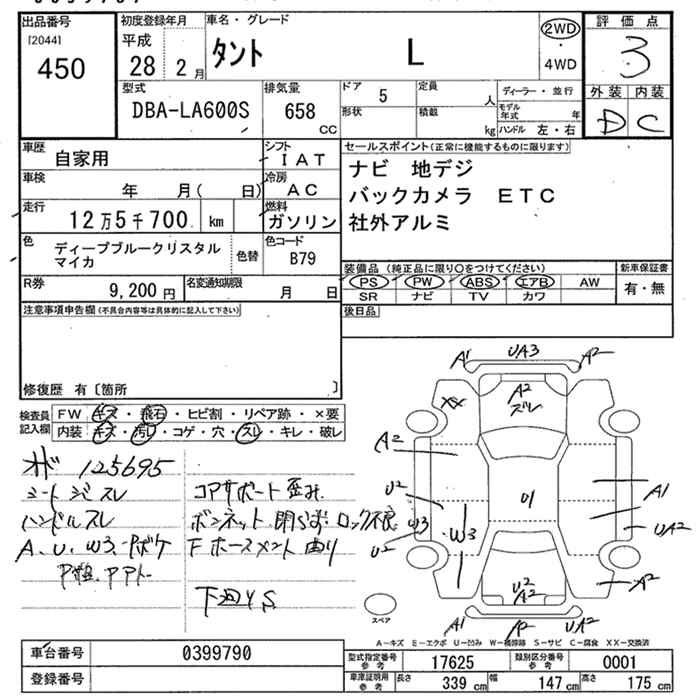 出品番号
[2044]
450
初度登録年月
平成
28 2 月
車名・グレード
タント L
2WD
・
4WD
評価点
3
外装 内装
D C
型式
DBA-LA600S
排気量
658
CC
ドア 5
形状
定員 人
積載 kg
ディーラー・並行
モデル年式 年
ハンドル 左・右
車歴
自家用
シフト
IAT
車検
年 月( 日)
冷房
AC
走行
12万5千700 km
燃料
ガソリン
セールスポイント(正常に機能するものに限ります)
ナビ 地デジ
バックカメラ ETC
社外アルミ
色
ディープブルークリスタル
マイカ
色替
色コード
B79
装備品(純正品に限り○をつけてください)
PS PW ABS エアB AW
SR ナビ TV カワ
新車保証書
有・無
R券
9,200 円
名変通知期限
月 日
後日品
注意事項申告欄(不具合内容等は具体的に記入して下さい)
修復歴 有〔箇所 〕
検査員
記入欄
FW キズ・飛石・ヒビ割・リペア跡・×要
内装 キズ・汚れ・コゲ・穴・スレ・キレ・破レ
125695
シートジミスレ
ハンドルスレ
A、U、W3、Pボケ
コアサポート歪み
ボンネット閉らず ロック不良
Fホースメント曲り
下廻りS
A1 UA3 A2
XX
A2
ズレ
A2
U2
W3
U2
W3
U1
A1
UA2
A2
U2
A2
A1 A2 UA2
スペア
A-キズ E-エクボ U-凹み W-補修跡 S-サビ C-腐食 XX-交換済
車台番号
0399790
登録番号
型式指定番号
参考
17625
類別区分番号
参考
0001
車庫証明用
参考
長さ 339 cm
幅 147 cm
高さ 175 cm